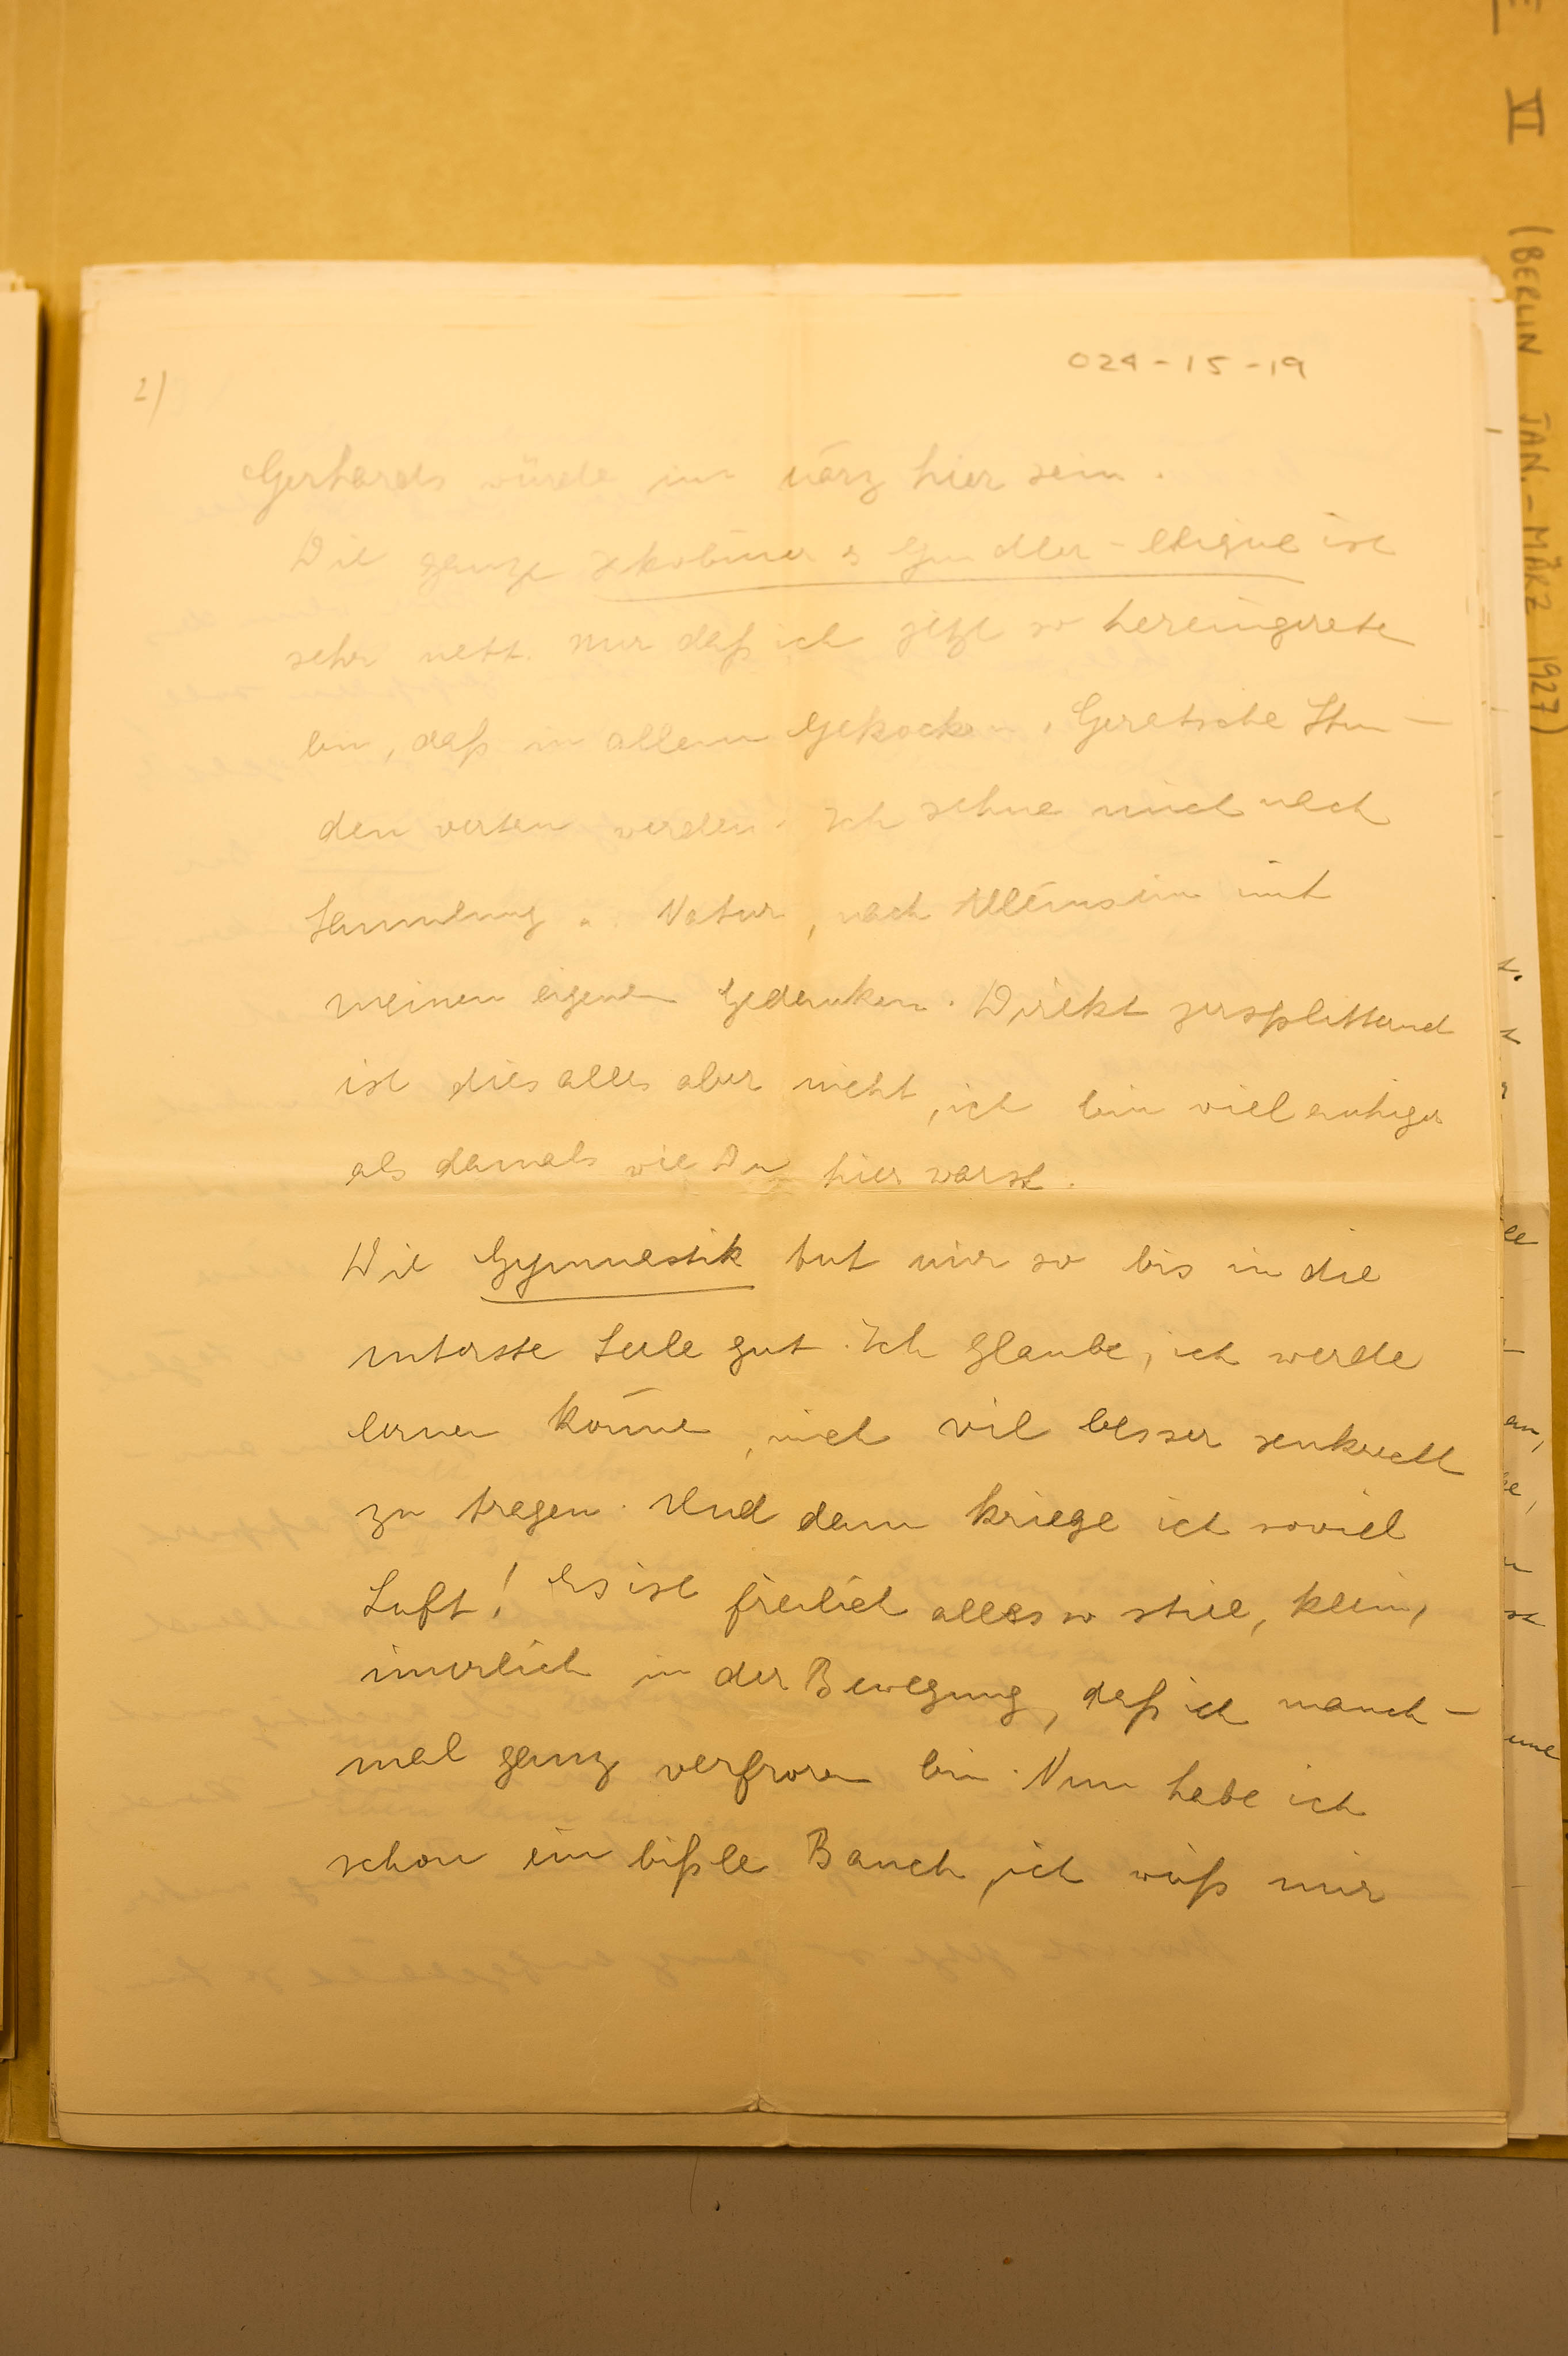 VI (BERLIN JAN.-MÄRZ 1927)
024-15-19
2)
Gerhards würde im März hier sein.
Die ganze Gindler-Clique ist
sehr nett. Nur daß ich jetzt so hereingerate
bin, daß in allem Stun-
den werden. Ich sehne mich nach
Sammlung u. Natur, nach Alleinsein mit
meinen eigenen Gedanken. Direkt zersplitternd
ist dies alles aber nicht, ich bin viel ruhiger
als damals wie Du hier warst.
Die Gymnastik tut mir so bis in die
unterste Seele gut. Ich glaube, ich werde
lernen könne, mich viel besser senkrecht
zu tragen. Und dann kriege ich soviel
Luft! Es ist freilich alles so still, klein,
innerlich in der Bewegung, daß ich manch-
mal ganz verfroren bin. Nun habe ich
schon ein bißle Bauch, ich muß mir